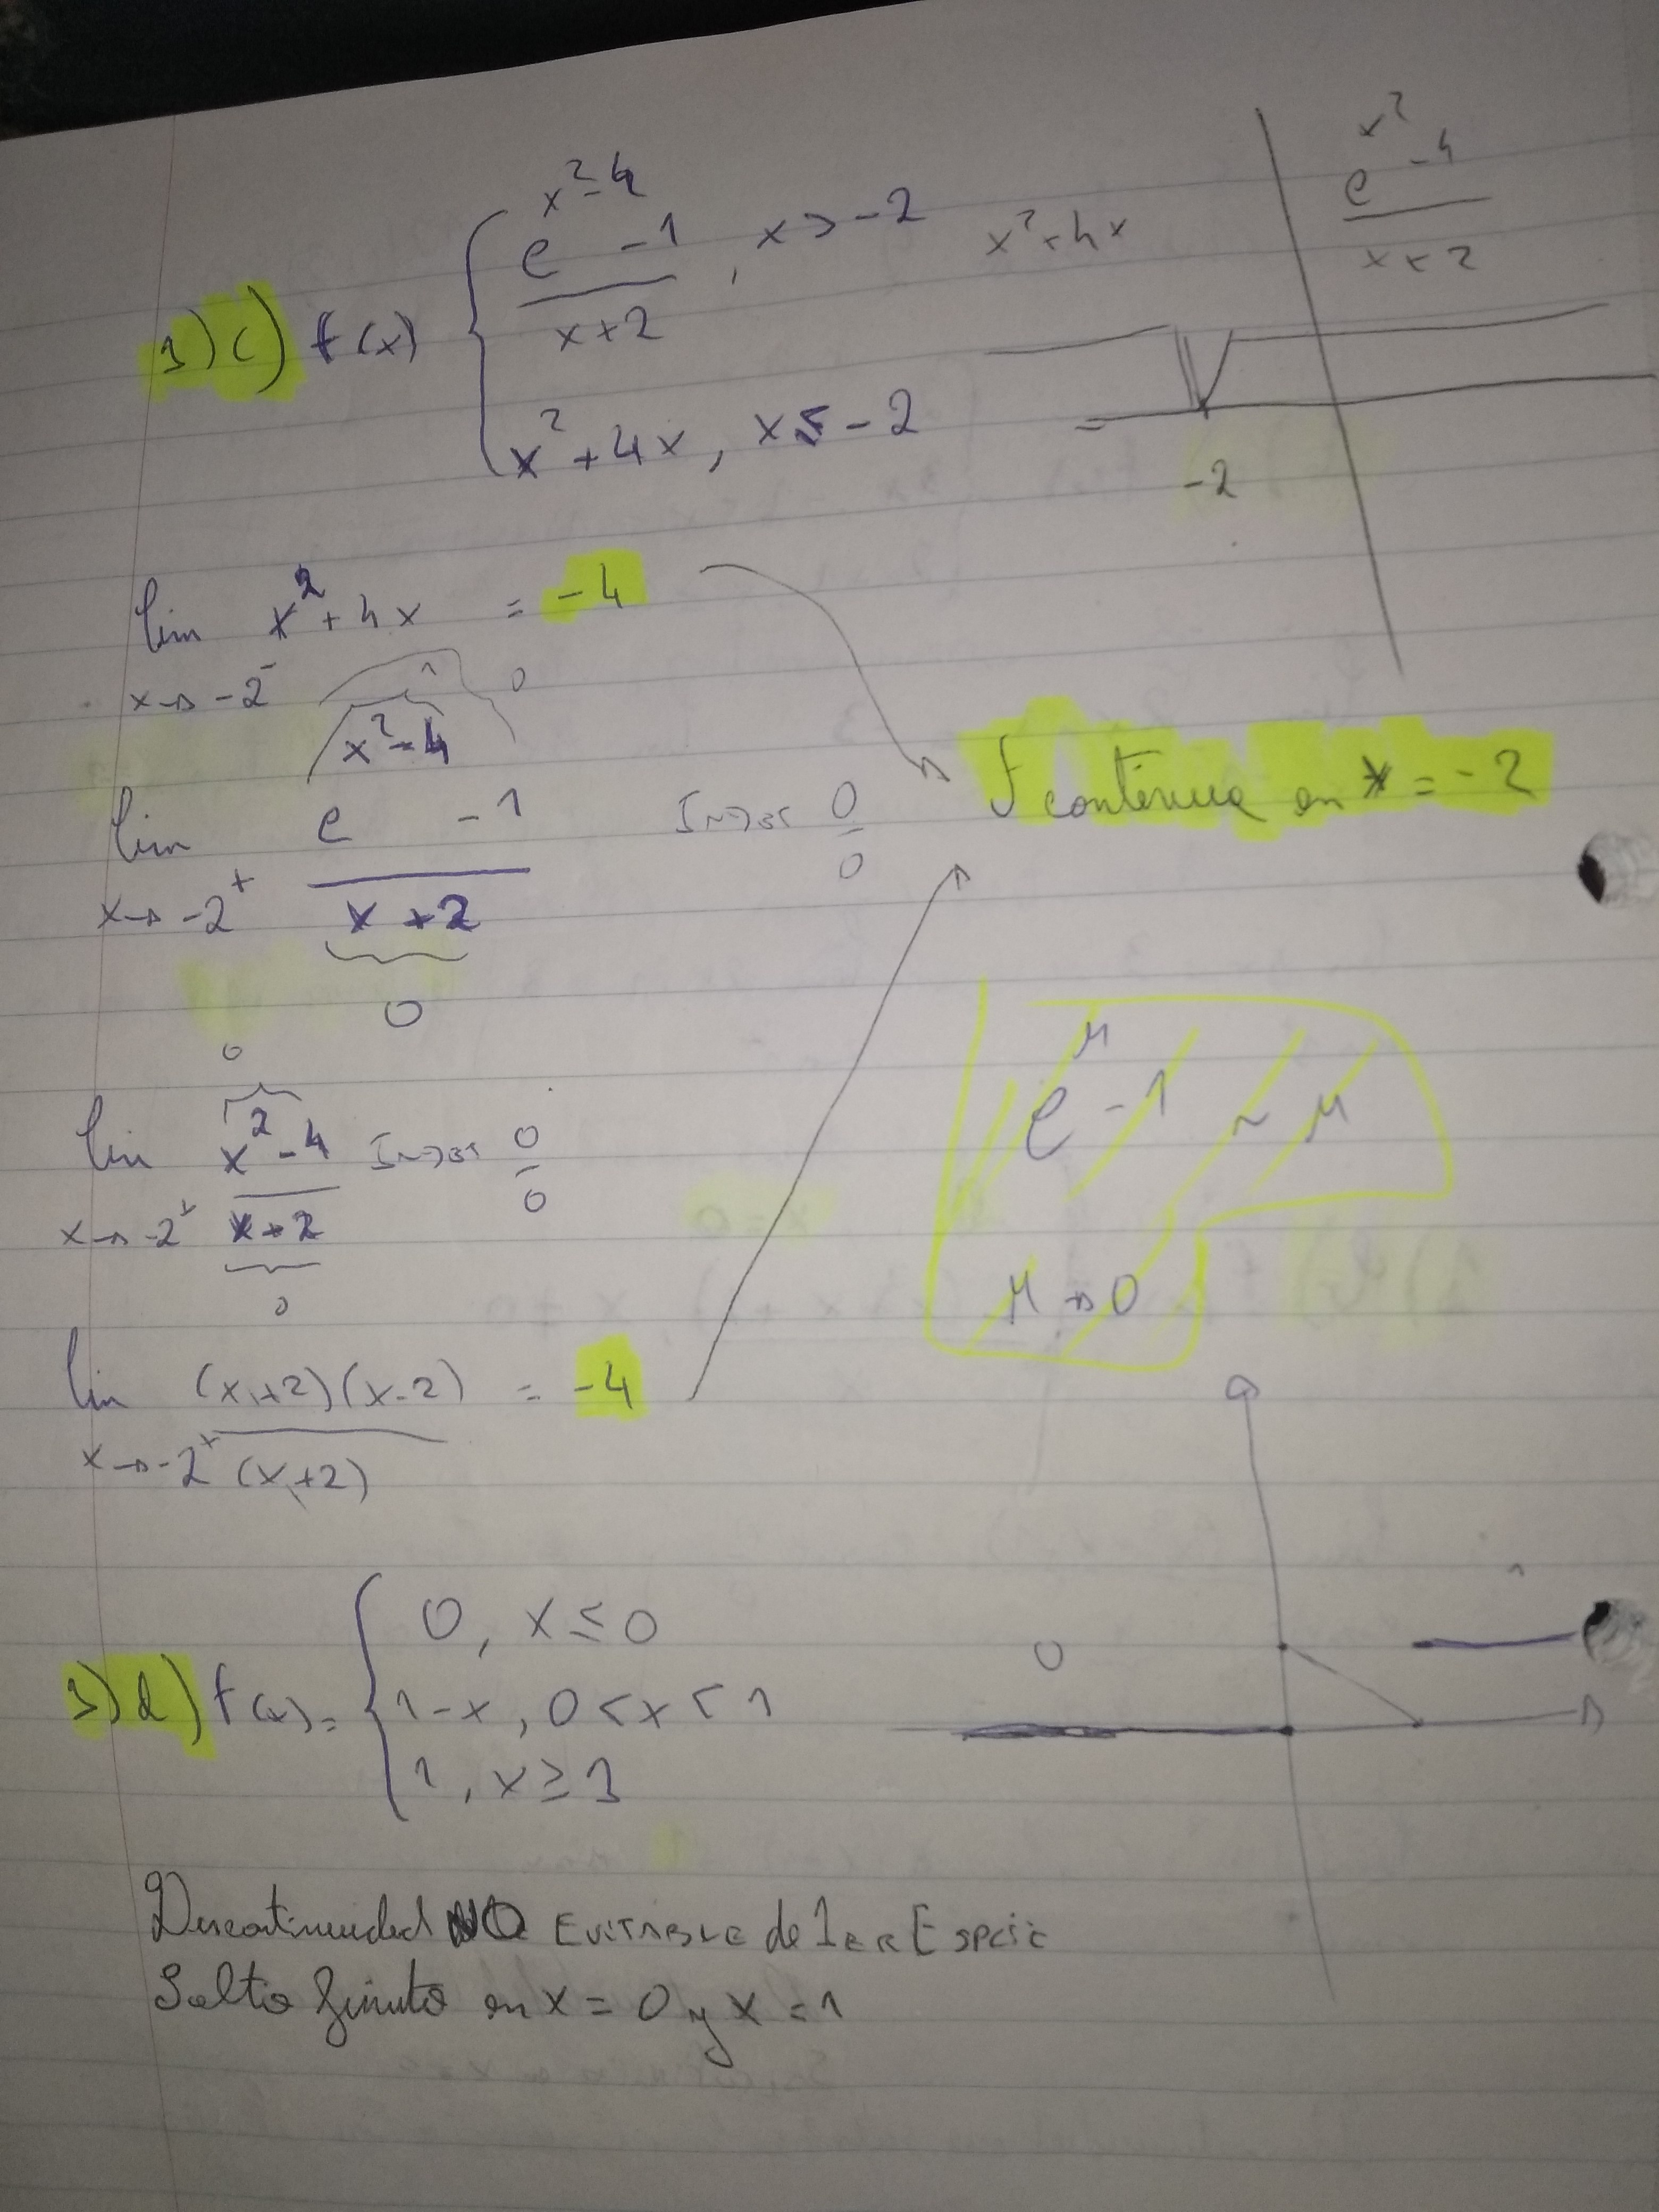 1) c) f(x) { (e^(x²-4) - 1)/(x+2), x > -2
x² + 4x, x ≤ -2
x² + 4x
e^(x²-4)
x+2
-2
lim x→-2⁻ x² + 4x = -4
lim x→-2⁺ (e^(x²-4) - 1)/(x+2) 0/0
0
0
f continua en x = -2
lim x→-2⁺ (x²-4)/(x+2) 0/0
0
0
e^μ - 1 ~ μ
μ→0
lim x→-2⁺ (x+2)(x-2)/(x+2) = -4
d) f(x) = { 0, x ≤ 0
1-x, 0 < x < 1
1, x ≥ 1
0
Discontinuidad NO EVITABLE de 1ER Especie
Salto finito en x = 0 y x = 1